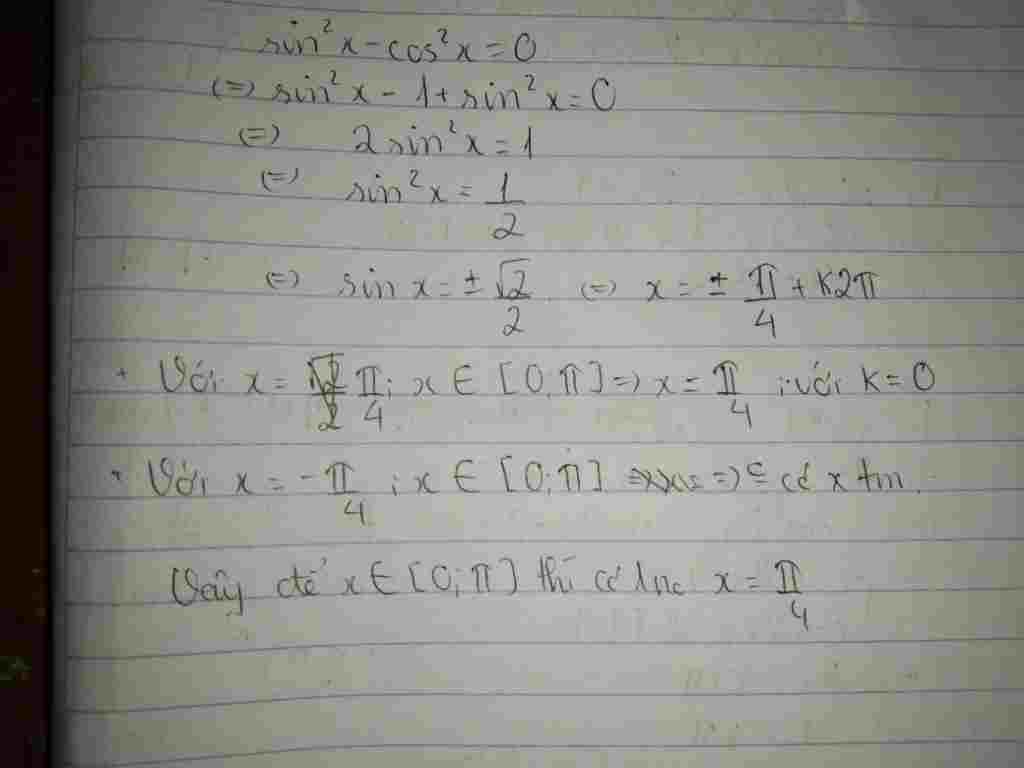 sin²x - cos²x = 0
(=) sin²x - 1 + sin²x = 0
(=) 2sin²x = 1
(=) sin²x = 1/2
(=) sin x = ± √2/2 (=) x = ± π/4 + K2π
+ Với x = π/4; x ∈ [0; π] => x = π/4 ; với K = 0
+ Với x = -π/4 ; x ∈ [0; π] => có x tm.
Vậy để x ∈ [0; π] thì có 1 x = π/4